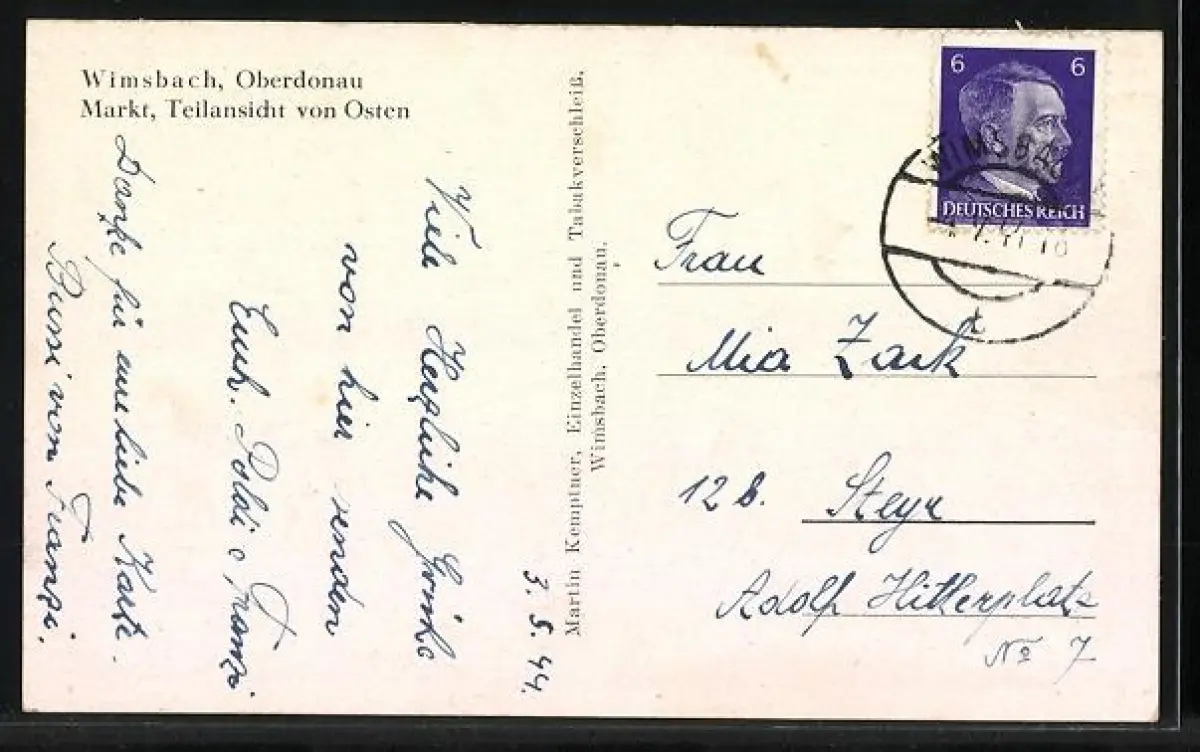 Wimsbach, Oberdonau
Markt, Teilansicht von Osten
3. 5. 44.
Viele Herzliche Grüße
von hier senden
Euch. Poldi & Franzi
Danke für eure liebe Karte.
Bussi von Franzi.
Martin Kemptner, Einzelhandel und Tabakverschleiß,
Wimsbach, Oberdonau.
6 6
DEUTSCHES REICH
WIMSBA
Frau
Mia Zark
12 b. Steyr
Adolf Hitlerplatz
No 7